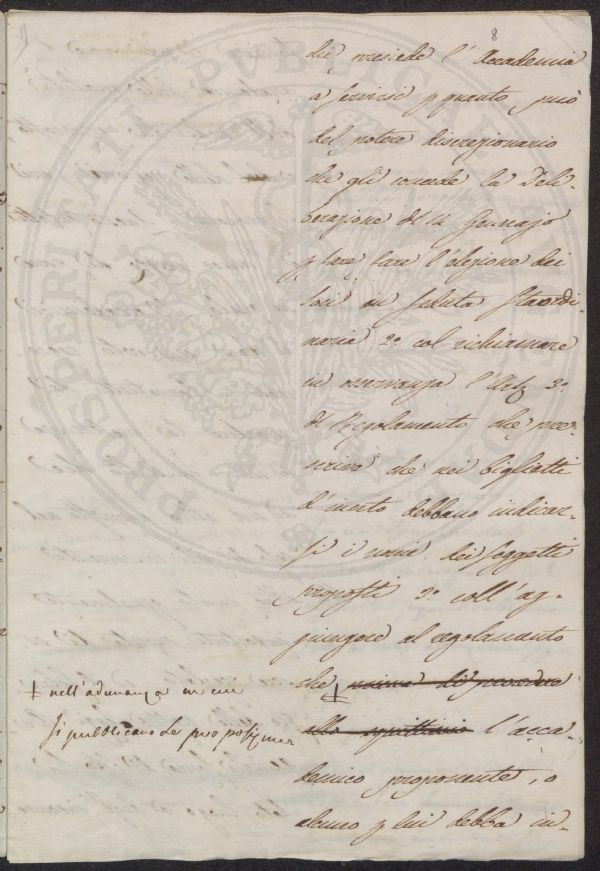 8
che presiede l'Accademia
a servirsi p quanto può
del potere discrezionario
che gli concede la Deli-
berazione del 14 Gennajo
p fare fare l'elezione dei
Soci in seduta straordi
naria 2º col richiamare
in osservanza l'Art. 3º
del Regolamento che pre-
scrive che nei biglietti
d'invito debbano indicar-
si i nomi dei soggetti
proposti 3º coll'ag-
giungere al regolamento
che prima di procedere
allo squittinio l'acca-
demico proponente, o
alcuno p lui debba in-
+ nell'adunanza in cui
si pubblicano le proposizioni
PROSPERITATI PUBLICAE